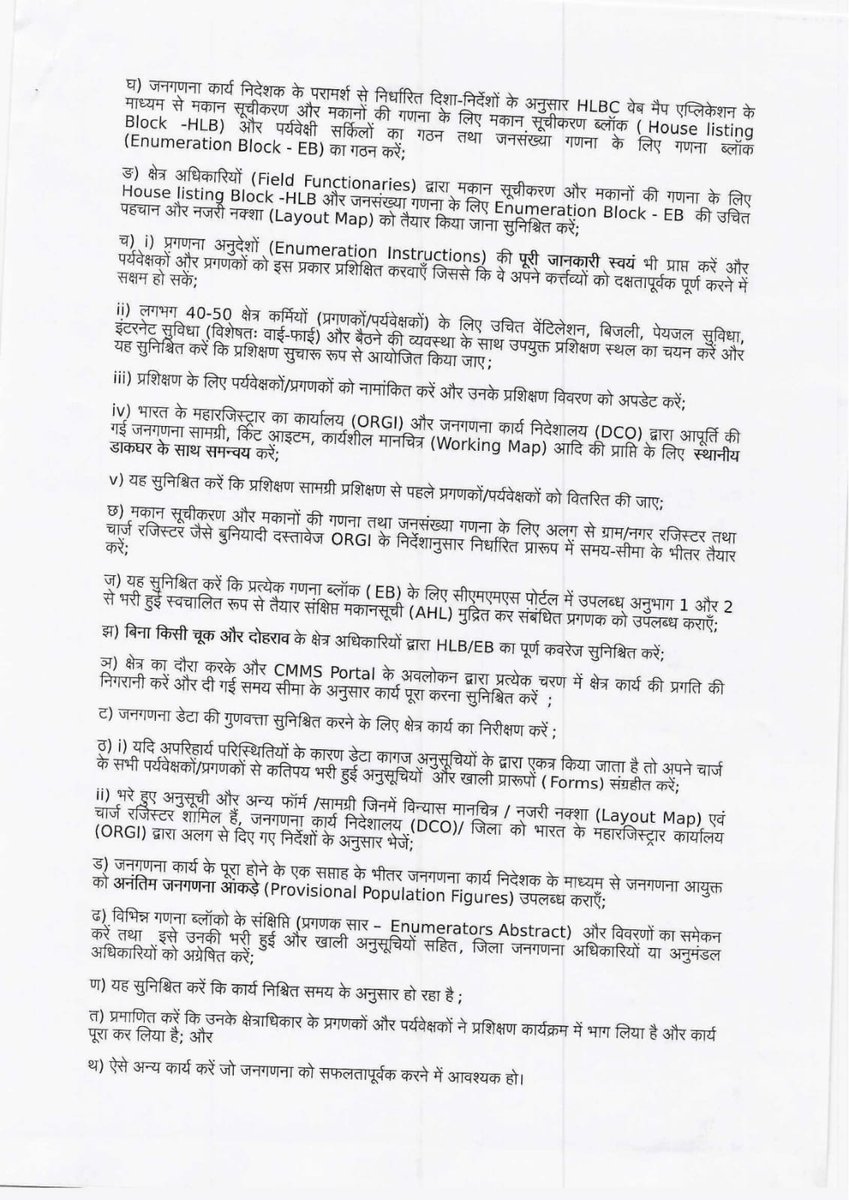 घ) जनगणना कार्य निदेशक के परामर्श से निर्धारित दिशा-निर्देशों के अनुसार HLBC वेब मैप एप्लिकेशन के
माध्यम से मकान सूचीकरण और मकानों की गणना के लिए मकान सूचीकरण ब्लॉक ( House listing
Block -HLB) और पर्यवेक्षी सर्किलों का गठन तथा जनसंख्या गणना के लिए गणना ब्लॉक
(Enumeration Block - EB) का गठन करें;
ङ) क्षेत्र अधिकारियों (Field Functionaries) द्वारा मकान सूचीकरण और मकानों की गणना के लिए
House listing Block -HLB और जनसंख्या गणना के लिए Enumeration Block - EB की उचित
पहचान और नजरी नक्शा (Layout Map) को तैयार किया जाना सुनिश्चित करें;
च) i) प्रगणना अनुदेशों (Enumeration Instructions) की पूरी जानकारी स्वयं भी प्राप्त करें और
पर्यवेक्षकों और प्रगणकों को इस प्रकार प्रशिक्षित करवाएँ जिससे कि वे अपने कर्त्तव्यों को दक्षतापूर्वक पूर्ण करने में
सक्षम हो सकें;
ii) लगभग 40-50 क्षेत्र कर्मियों (प्रगणकों/पर्यवेक्षकों) के लिए उचित वेंटिलेशन, बिजली, पेयजल सुविधा,
इंटरनेट सुविधा (विशेषतः वाई-फाई) और बैठने की व्यवस्था के साथ उपयुक्त प्रशिक्षण स्थल का चयन करें और
यह सुनिश्चित करें कि प्रशिक्षण सुचारू रूप से आयोजित किया जाए ;
iii) प्रशिक्षण के लिए पर्यवेक्षकों/प्रगणकों को नामांकित करें और उनके प्रशिक्षण विवरण को अपडेट करें;
iv) भारत के महारजिस्ट्रार का कार्यालय (ORGI) और जनगणना कार्य निदेशालय (DCO) द्वारा आपूर्ति की
गई जनगणना सामग्री, किट आइटम, कार्यशील मानचित्र (Working Map) आदि की प्राप्ति के लिए स्थानीय
डाकघर के साथ समन्वय करें;
v) यह सुनिश्चित करें कि प्रशिक्षण सामग्री प्रशिक्षण से पहले प्रगणकों/पर्यवेक्षकों को वितरित की जाए;
छ) मकान सूचीकरण और मकानों की गणना तथा जनसंख्या गणना के लिए अलग से ग्राम/नगर रजिस्टर तथा
चार्ज रजिस्टर जैसे बुनियादी दस्तावेज ORGI के निर्देशानुसार निर्धारित प्रारूप में समय-सीमा के भीतर तैयार
करें;
ज) यह सुनिश्चित करें कि प्रत्येक गणना ब्लॉक ( EB) के लिए सीएमएमएस पोर्टल में उपलब्ध अनुभाग 1 और 2
से भरी हुई स्वचालित रूप से तैयार संक्षिप्त मकानसूची (AHL) मुद्रित कर संबंधित प्रगणक को उपलब्ध कराएँ;
झ) बिना किसी चूक और दोहराव के क्षेत्र अधिकारियों द्वारा HLB/EB का पूर्ण कवरेज सुनिश्चित करें;
ञ) क्षेत्र का दौरा करके और CMMS Portal के अवलोकन द्वारा प्रत्येक चरण में क्षेत्र कार्य की प्रगति की
निगरानी करें और दी गई समय सीमा के अनुसार कार्य पूरा करना सुनिश्चित करें ;
ट) जनगणना डेटा की गुणवत्ता सुनिश्चित करने के लिए क्षेत्र कार्य का निरीक्षण करें ;
ठ) i) यदि अपरिहार्य परिस्थितियों के कारण डेटा कागज अनुसूचियों के द्वारा एकत्र किया जाता है तो अपने चार्ज
के सभी पर्यवेक्षकों/प्रगणकों से कतिपय भरी हुई अनुसूचियों और खाली प्रारूपों (Forms) संग्रहीत करें;
ii) भरे हुए अनुसूची और अन्य फॉर्म /सामग्री जिनमें विन्यास मानचित्र / नजरी नक्शा (Layout Map) एवं
चार्ज रजिस्टर शामिल हैं, जनगणना कार्य निदेशालय (DCO)/ जिला को भारत के महारजिस्ट्रार कार्यालय
(ORGI) द्वारा अलग से दिए गए निर्देशों के अनुसार भेजें;
ड) जनगणना कार्य के पूरा होने के एक सप्ताह के भीतर जनगणना कार्य निदेशक के माध्यम से जनगणना आयुक्त
को अनंतिम जनगणना आंकड़े (Provisional Population Figures) उपलब्ध कराएँ;
ढ) विभिन्न गणना ब्लॉको के संक्षिप्ति (प्रगणक सार – Enumerators Abstract) और विवरणों का समेकन
करें तथा इसे उनकी भरी हुई और खाली अनुसूचियों सहित, जिला जनगणना अधिकारियों या अनुमंडल
अधिकारियों को अग्रेषित करें;
ण) यह सुनिश्चित करें कि कार्य निश्चित समय के अनुसार हो रहा है ;
त) प्रमाणित करें कि उनके क्षेत्राधिकार के प्रगणकों और पर्यवेक्षकों ने प्रशिक्षण कार्यक्रम में भाग लिया है और कार्य
पूरा कर लिया है; और
थ) ऐसे अन्य कार्य करें जो जनगणना को सफलतापूर्वक करने में आवश्यक हो।